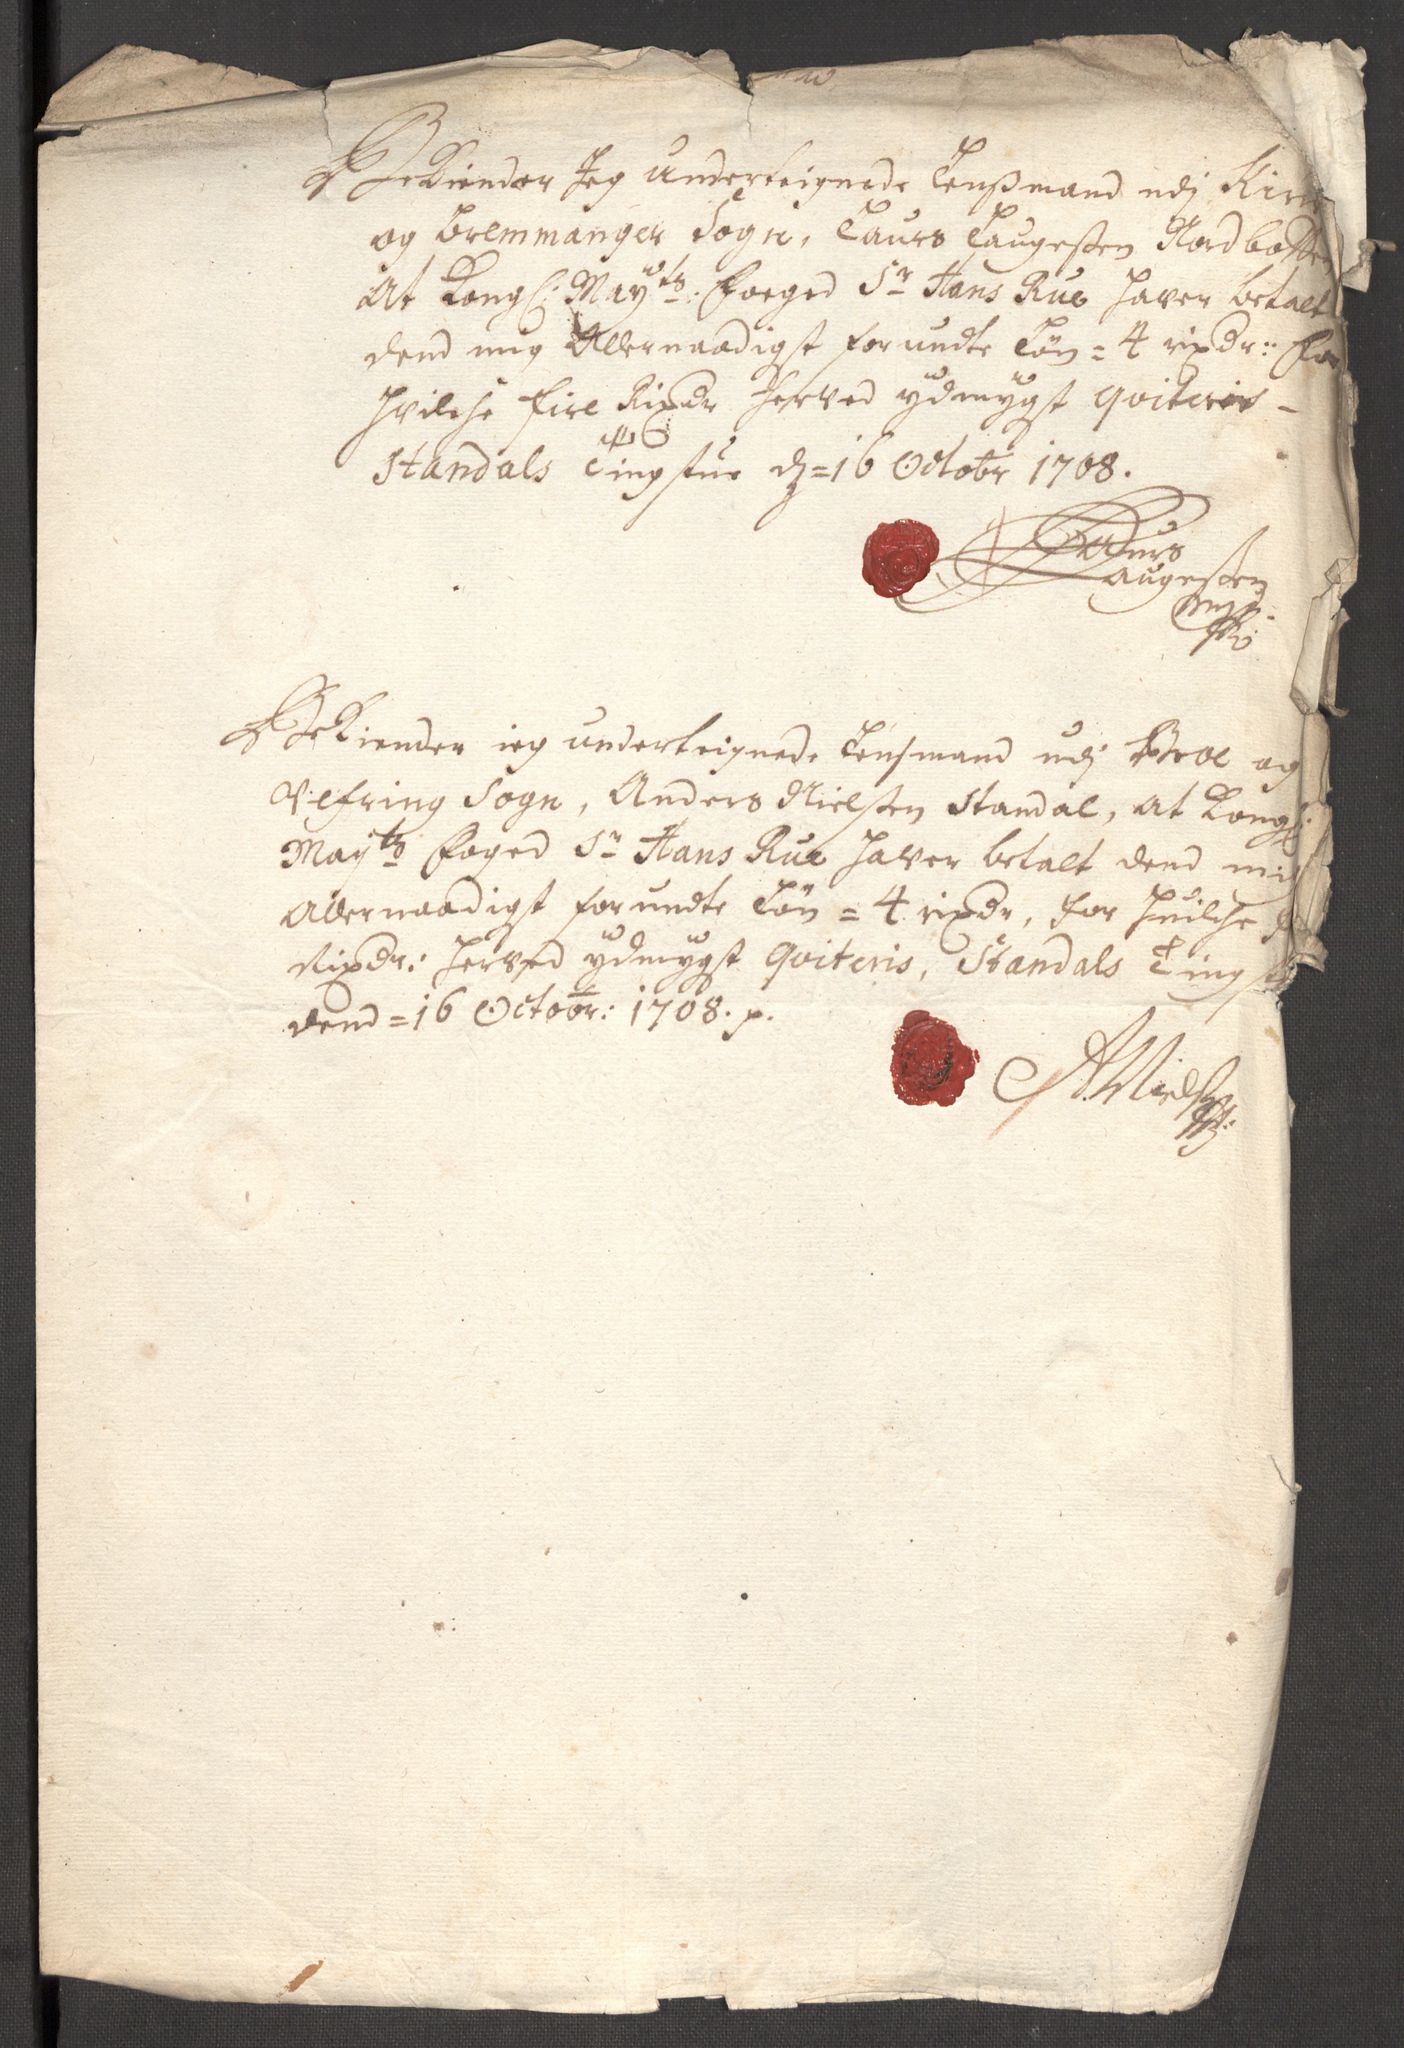 Bekiender Jeg underteignede Lenßmand udj Kinn
og Bremmanger Sogn, Laurs Laugeßen Nordbotten
At Kongl: Mayts: Foeged Sr Hans Rue haver betalt
dend mig Allernaadigst forundte Løn = 4 rixdr: For
hvilche fire Rixdr herved ydmygst qviteris -
Standals Tingstue d = 16 Octobr 1708.
Laurs
Laugeßen
Bekiender ieg underteignede Lensmand udj og
Vefring Sogn, Anders Nielßen Standal, at Kongl:
Mayts Foged Sr Hans Rue haver betalt dend mig
Allernaadigst forundte Løn = 4 rixdr, for hvilche
Rixdr: herved ydmygst qviteris, Standals Tingst
dend = 16 Octobr: 1708. p.
A. Nielßen